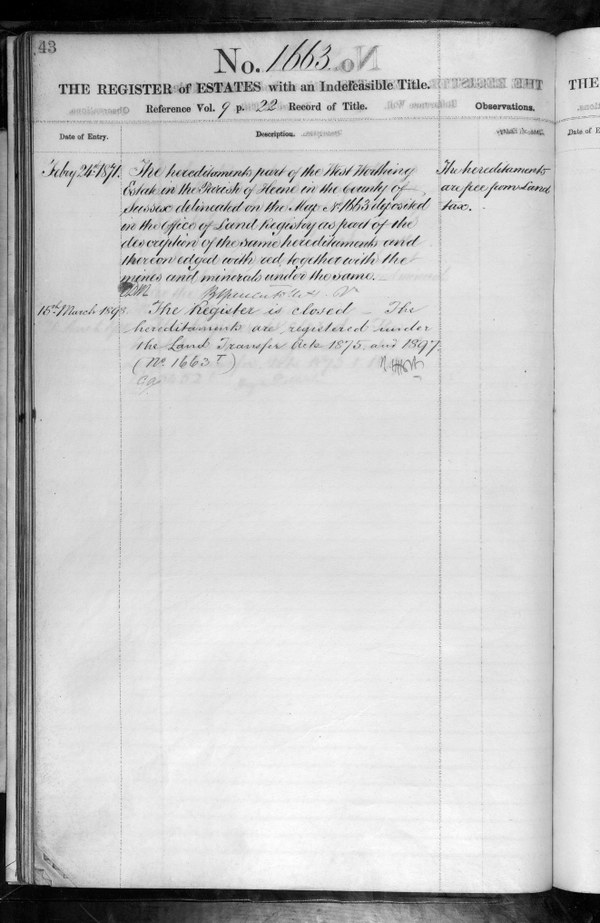 43
No. 1663
THE REGISTER of ESTATES with an Indefeasible Title.
Reference Vol. 9 p. 22 Record of Title.
Observations.
Date of Entry.
Description.
Feby 24th 1871.
The hereditaments part of the West Worthing
Estate in the Parish of Heene in the County of
Sussex delineated on the Map No 1663 deposited
in the Office of Land Registry as part of the
description of the same hereditaments and
thereon edged with red together with the
mines and minerals under the same.
The hereditaments
are free from Land
tax.
15th March 1898.
The Register is closed – The
hereditaments are registered under
the Land Transfer Acts 1875 and 1897.
(No. 1663 T)
THE
Date of E